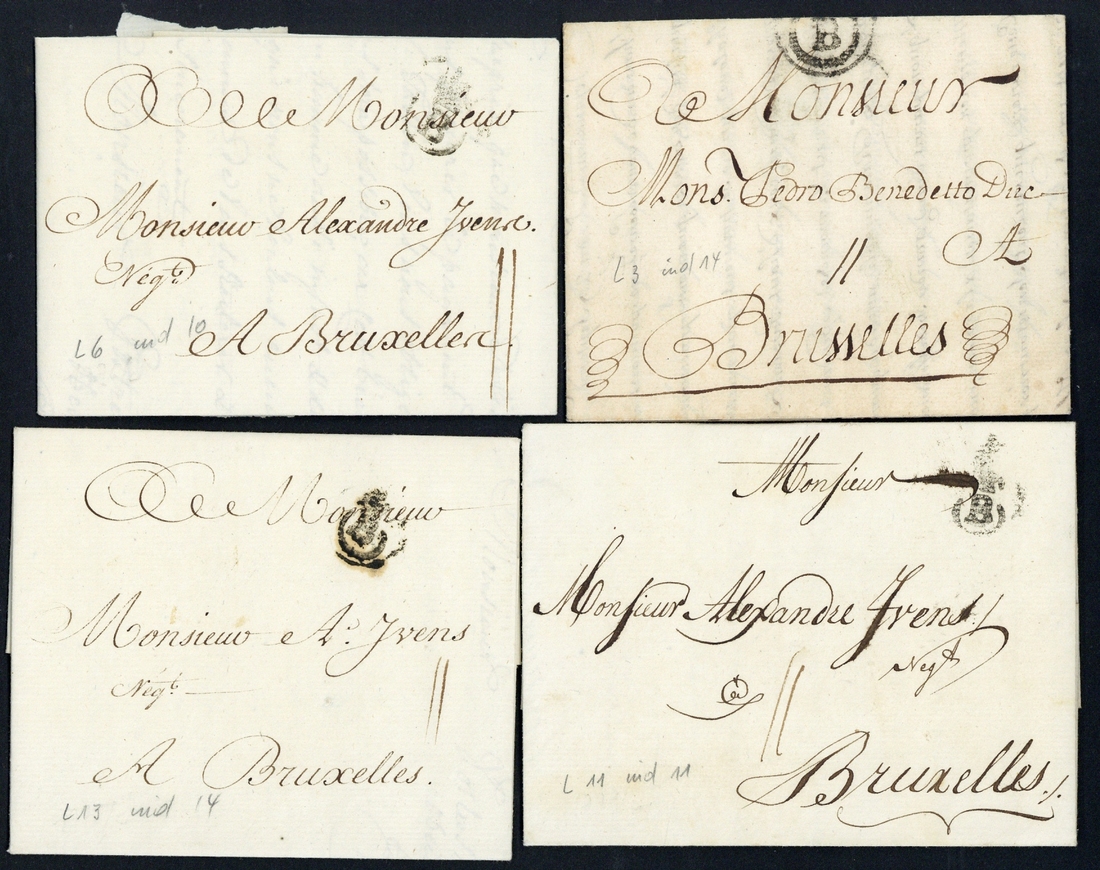 Monsieur
Monsieur Alexandre Jvens.
Négt
A Bruxelles.
L6 ind 10
B
Monsieur
Mons. Pedro Benedetto Duc
A
Brusselles
L3 ind 14
Monsieur
Monsieur A. Jvens
Négt
A Bruxelles.
L13 ind 14
B
Monsieur
Monsieur Alexandre Jvens
Negt
a
Bruxelles.
L 11 ind 11